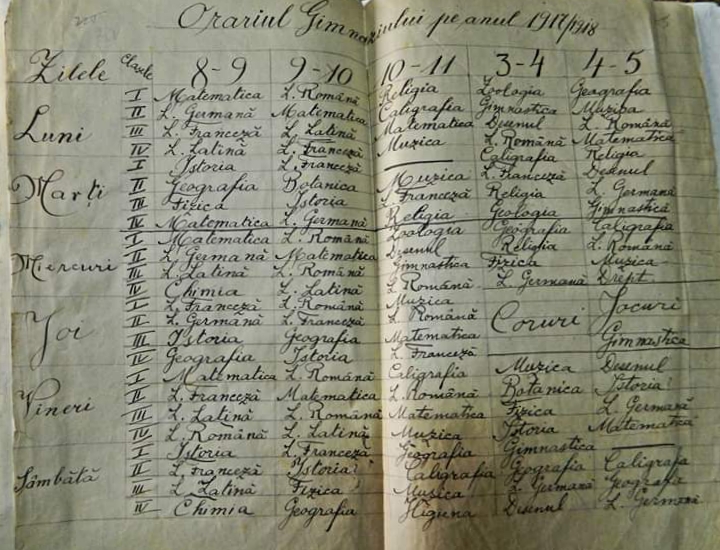 Orariul Gimnaziului pe anul 1917/1918
Zilele Clasele 8-9 9-10 10-11 3-4 4-5
I Matematica L. Română Religia Zoologia Geografia
II L. Germană Matematica Caligrafia Gimnastica Muzica
Luni III L. Franceză L. Latină Matematica Desenul L. Română
IV L. Latină L. Franceză Muzica L. Română Matematica
I Istoria L. Franceză — Caligrafia Religia
Marți II Geografia Botanica Muzica L. Franceză Desnul
III Fizica Istoria L. Franceză Religia L. Germană
IV Matematica L. Germană Religia Geologia Gimnastică
I Matematica L. Română Zoologia Geografia Caligrafia
Miercuri II L. Germana Matematica Desenul Religia L. Română
III L. Latină L. Română Gimnastica Fizica Muzica
IV Chimia L. Latină L. Română L. Germană Drept.
I L. Franceză L. Română Muzica
Joi II L. Germană L. Franceză L. Română Coruri Jocuri
III Istoria Geografia Matematica Gimnastica
IV Geografia Istoria L. Franceză
I Matematica L. Română Caligrafia Muzica Desenul
Vineri II L. Franceză Matematica L. Română Botanica Istoria
III L. Latină L. Română Matematica Fizica L. Germană
IV L. Română L. Latină Muzica Istoria Matematica
I Istoria Geografia Gimnastica —
Sâmbătă II L. Franceză Istoria Caligrafia Geografia Caligrafia
III L. Latină Fizica Muzica L. Germană Geografia
IV Chimia Geografia Higiena Desenul L. Germană